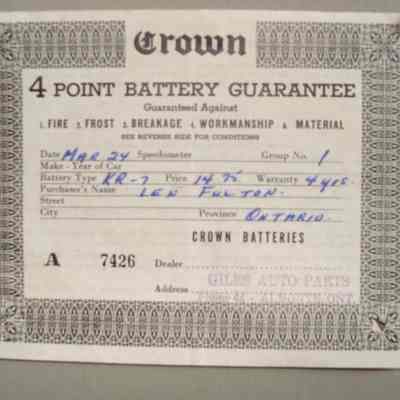 Crown
4 POINT BATTERY GUARANTEE
Guaranteed Against
1. FIRE 2. FROST 3. BREAKAGE 4. WORKMANSHIP & MATERIAL
SEE REVERSE SIDE FOR CONDITIONS
Date MAR 24 Speedometer Group No. 1
Make - Year of Car
Battery Type KR-7 Price 14.75 Warranty 4 yrs.
Purchaser's Name LEN FULTON.
Street
City Province ONTARIO.
CROWN BATTERIES
A 7426 Dealer
GILES AUTO PARTS
Address